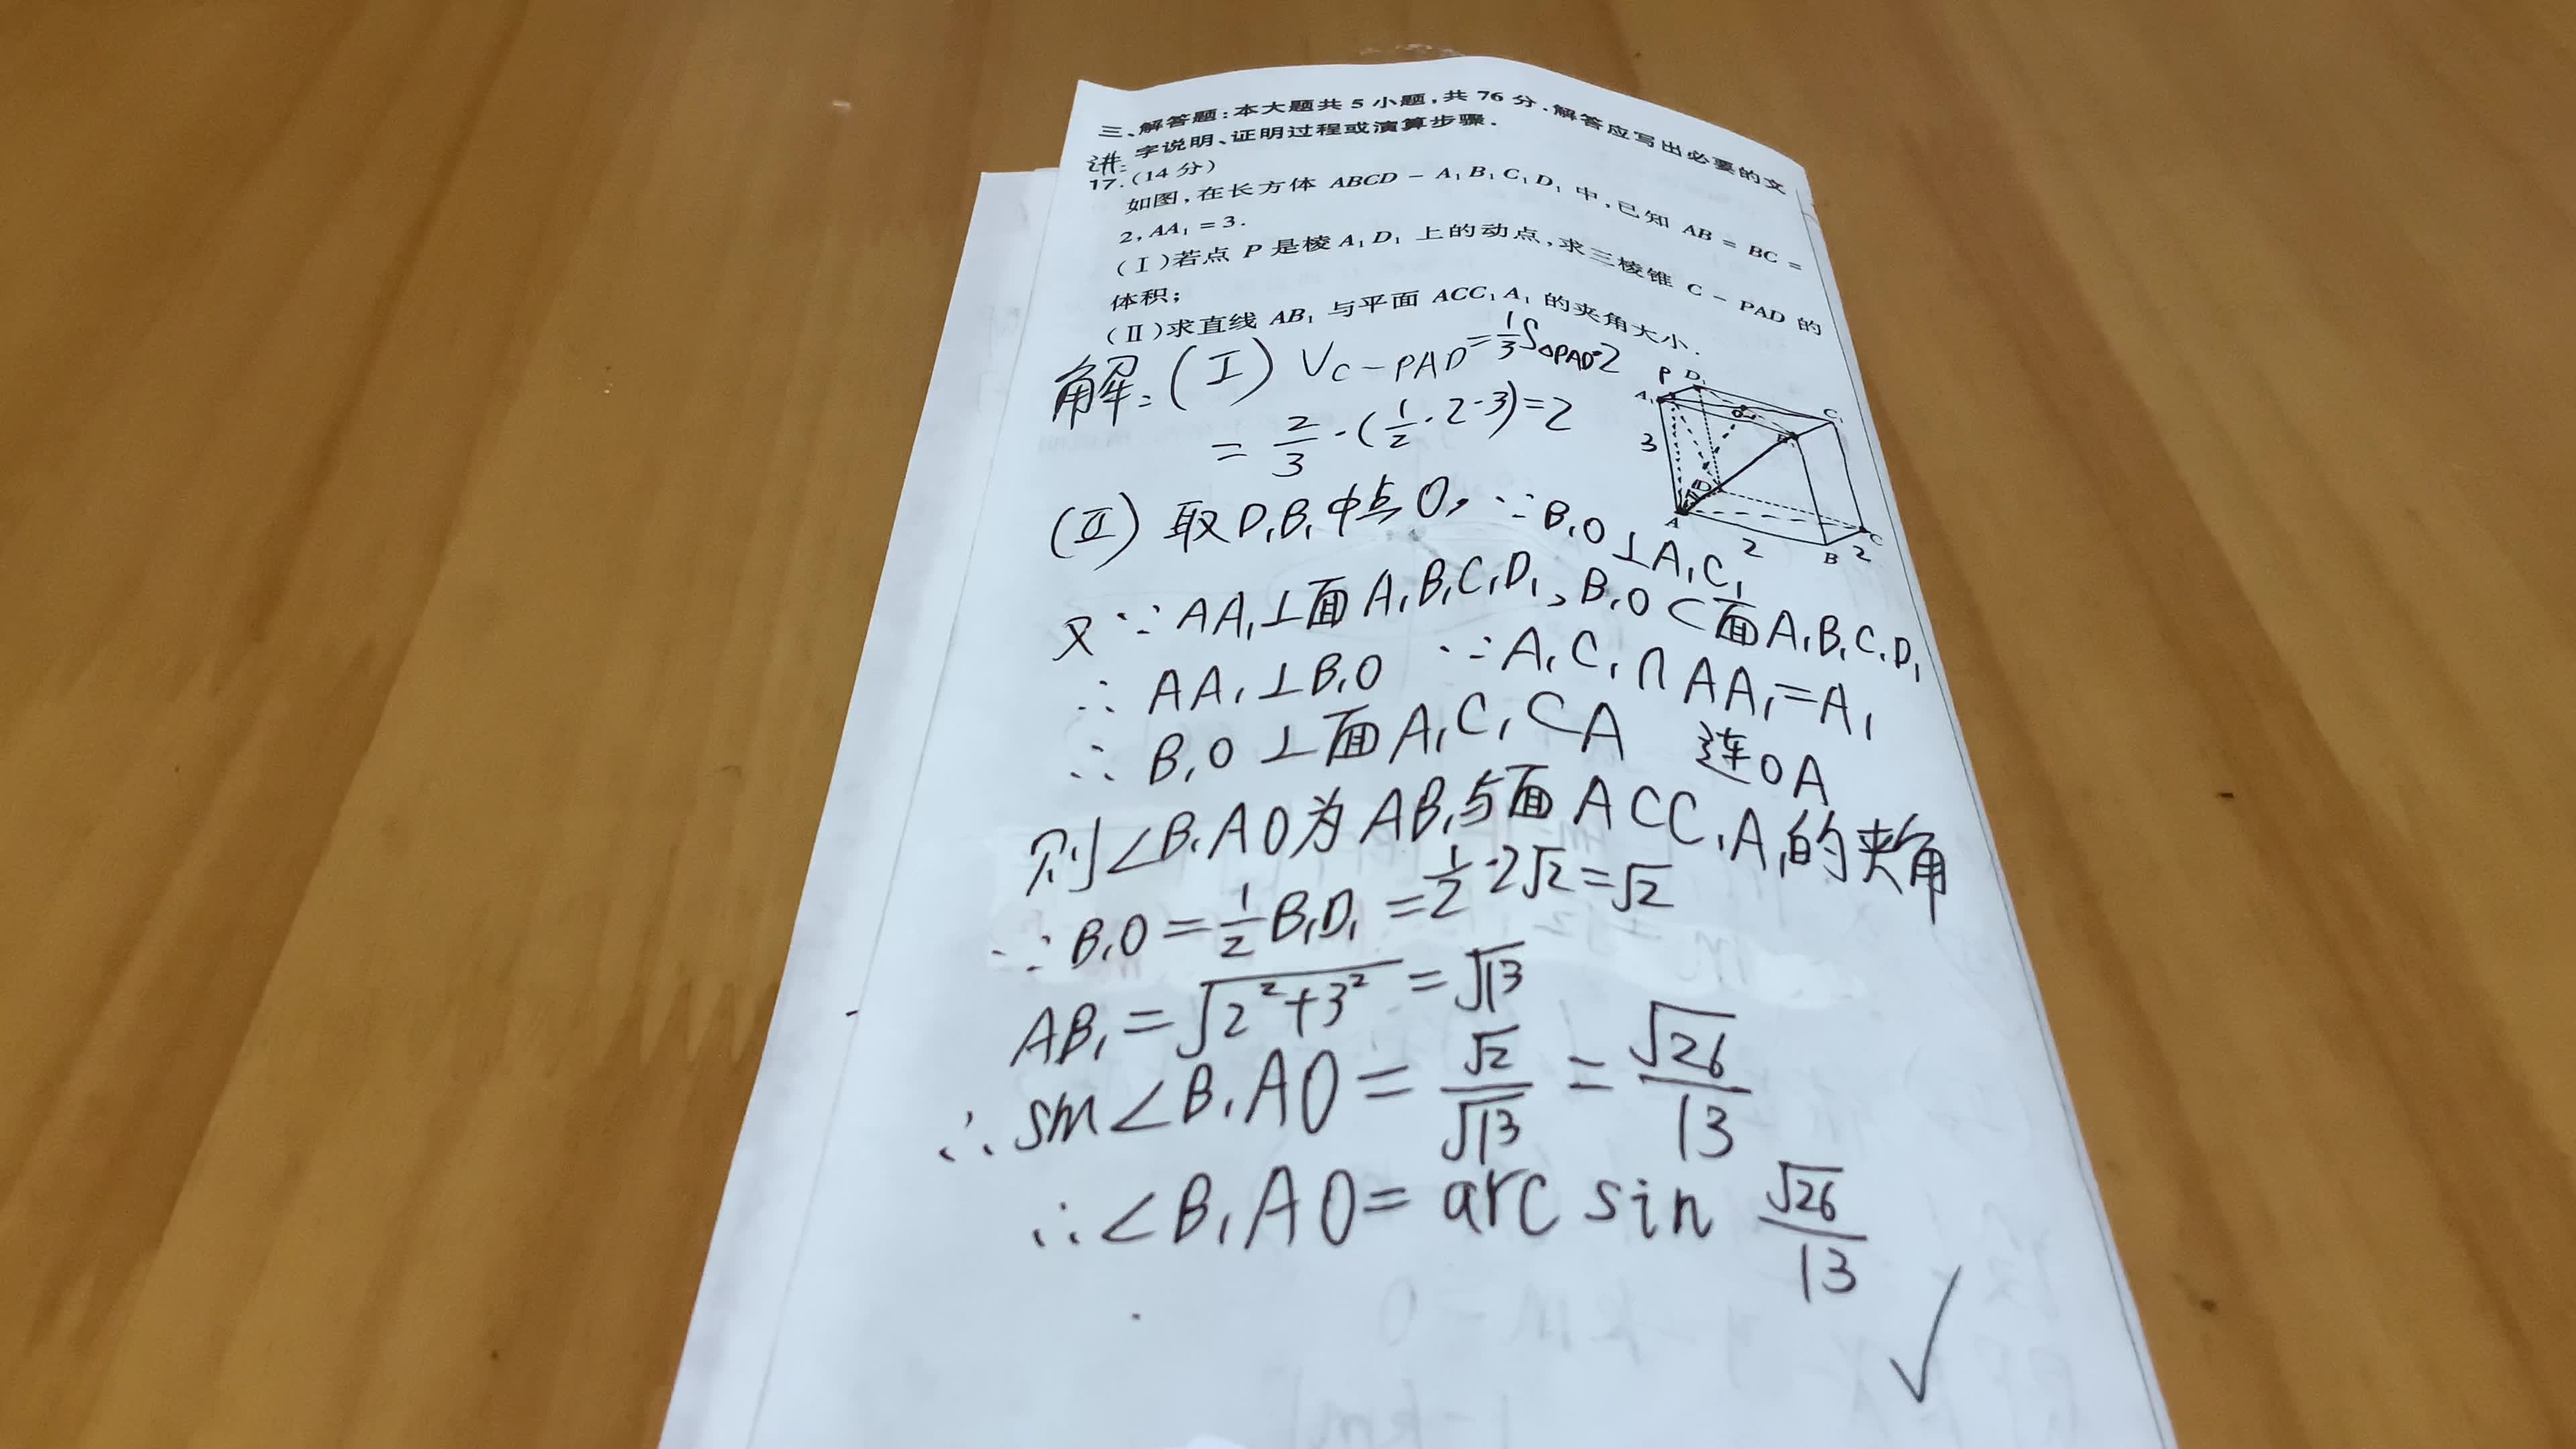 三、解答题:本大题共 5 小题,共 76 分.解答应写出必要的文
字说明、证明过程或演算步骤.
讲:
17.(14 分)
如图,在长方体 ABCD - A₁B₁C₁D₁ 中,已知 AB = BC =
2, AA₁ = 3.
(Ⅰ)若点 P 是棱 A₁D₁ 上的动点,求三棱锥 C - PAD 的
体积;
(Ⅱ)求直线 AB₁ 与平面 ACC₁A₁ 的夹角大小.
解:(Ⅰ) V_{C-PAD} = 1/3 S_{△PAD}·2
= 2/3 ·(1/2·2·3)=2
P D₁
A₁ C₁
O B₁
3
D
A C
2 B 2
(Ⅱ) 取D₁B₁中点O, ∵B₁O⊥A₁C₁
又∵AA₁⊥面A₁B₁C₁D₁, B₁O⊂面A₁B₁C₁D₁
∴AA₁⊥B₁O ∵A₁C₁∩AA₁=A₁
∴B₁O⊥面A₁C₁CA 连OA
则∠B₁AO为AB₁与面ACC₁A₁的夹角
∵B₁O=1/2B₁D₁=1/2·2√2=√2
AB₁=√(2²+3²)=√13
∴sin∠B₁AO=√2/√13=√26/13
∴∠B₁AO=arc sin √26/13
✓